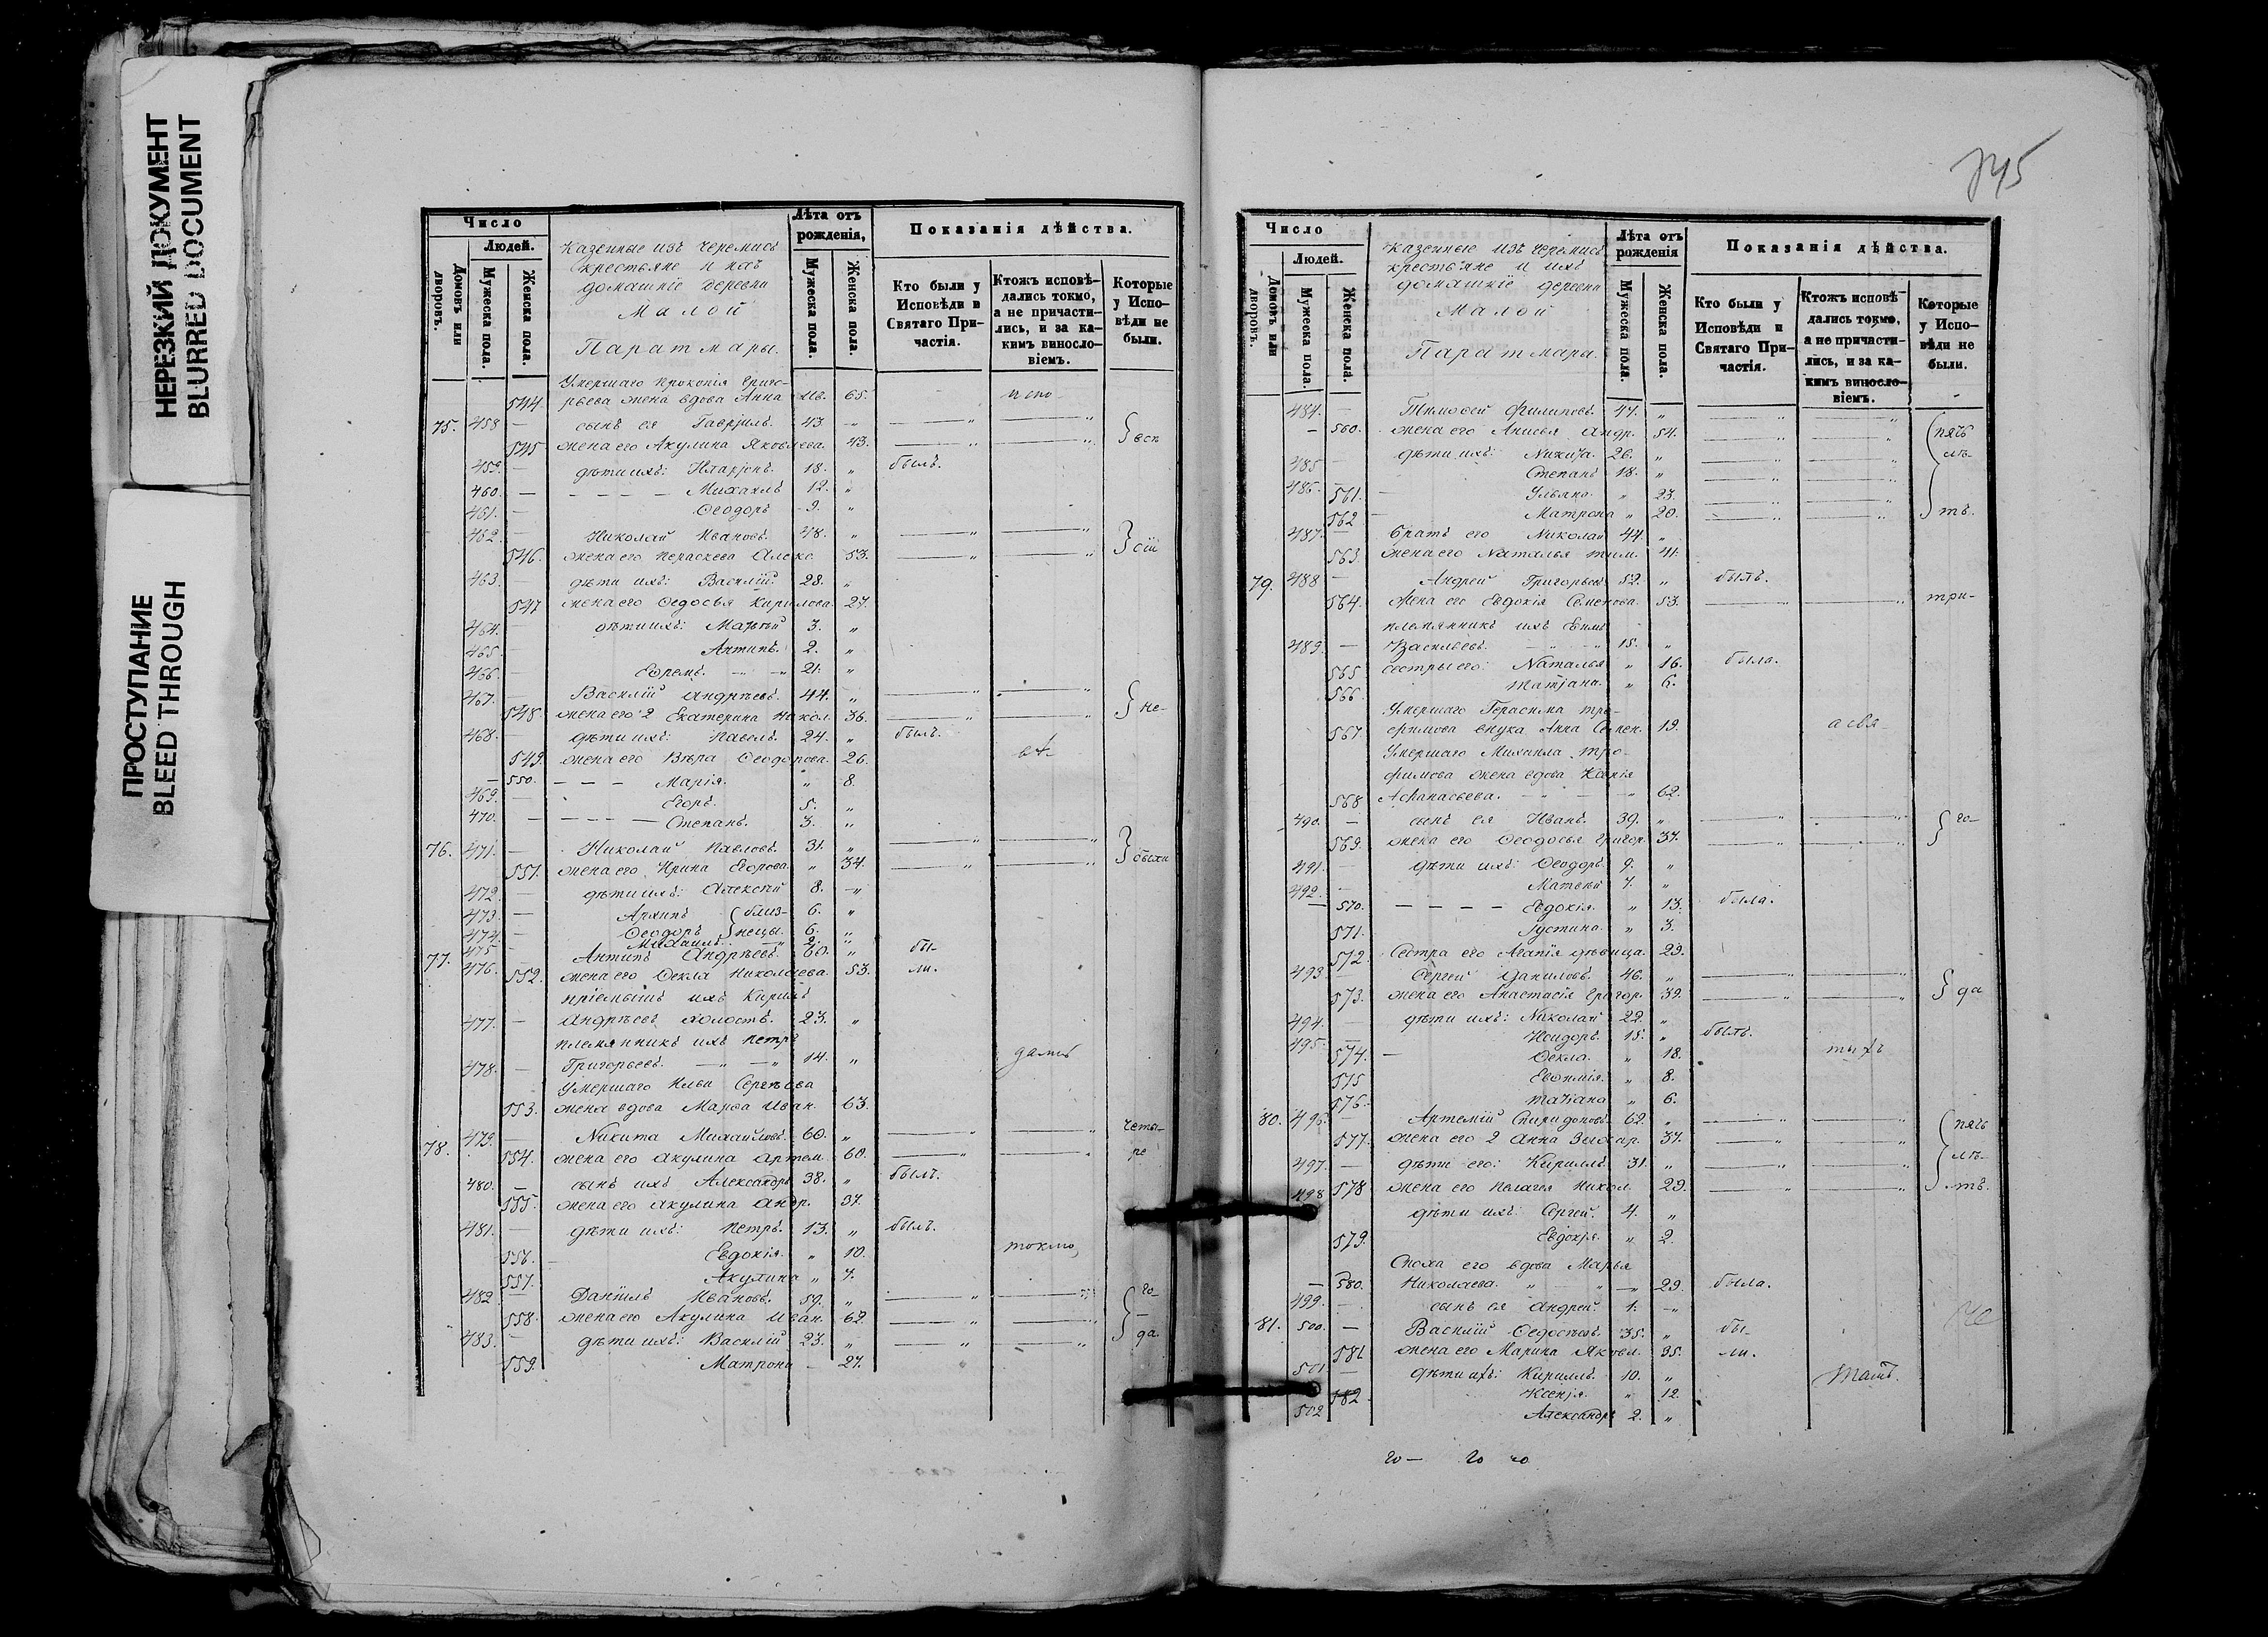 НЕРЕЗКИЙ ДОКУМЕНТ
BLURRED DOCUMENT
ПРОСТУПАНИЕ
BLEED THROUGH
Число
Людей.
Домовъ или дворовъ.
Мужеска пола.
Женска пола.
Казенные изъ черемисъ
крестьяне и ихъ
домашніе деревни
Малой
Паратмары.
Лѣта отъ
рожденія,
Мужеска пола.
Женска пола.
Показанія дѣйства.
Кто были у
Исповѣди и
Святаго При-
частія.
Ктожъ исповѣ-
дались токмо,
а не причасти-
лись, и за ка-
кимъ винословіемъ.
Которые
у Испо-
вѣди не
были.
Умершаго Прокопія Григо-
544. рьева жена вдова Анна 65. испо-
75. 458 — сынъ ея Гаврiилъ. 43. „
545 жена его Акулина Яковлева. 43.
459. дѣти ихъ: Иларіонъ. 18. „ былъ.
460. — Михаилъ 12. „
461. — Ѳеодоръ 9. „
462. Николай Ивановъ. 48. „
546. жена его Параскева Алекс. 53. сiи
463. дѣти ихъ: Василій. 28. „
547 жена его Ѳедосья Кирилова. 27.
464. дѣти ихъ: 3. „
465. — Антипъ. 2. „
466. — Ефремъ. 21. „
467. — Василій Андрѣевъ. 44. „
548. жена его 2 Екатерина Никол. 36. не-
468. дѣти ихъ: Павелъ. 24. „ былъ.
549. жена его Вѣра Ѳеодорова. 26.
550. Марія. „ 8.
469. — Егоръ. 5. „
470. — Степанъ. 3. „
76. 471. — Николай Павловъ. 31. „
551. жена его Ирина Егорова. „ 34. были
472. — дѣти ихъ: Алексѣй 8. „
473. — Архипъ близ- 6. „
474. Ѳеодоръ нецы. 6. „
475 — Михаилъ. 2. „
77. 476. Антипъ Андрѣевъ. 60. „ бы-
552. жена его Ѳекла Николаева. 53. ли.
пріемышъ ихъ Кирилъ
477. — Андрѣевъ холостъ. 23. „
племянникъ ихъ Петръ
478. — Григорьевъ. 14. „
Умершаго Ильи Сергѣева
553. жена вдова Марѳа Иван. 63.
78. 479. — Никита Михайловъ. 60. „ четы-
554. жена его Акулина Артем. 60. ре
480. — сынъ ихъ Александръ 38. „ былъ.
555. жена его Акулина Андр. 37.
481. — дѣти ихъ: Петръ. 13. „ былъ.
556. — Евдокія. „ 10. токмо,
557. Акулина „ 7.
482 — Даніилъ Ивановъ. 59. „ го-
558. жена его Акулина Иван. 62.
483. — дѣти ихъ: Василій 23. „ да.
559. Матрона — 27.
Число
Людей.
Домовъ или дворовъ.
Мужеска пола.
Женска пола.
Казенные изъ черемисъ
крестьяне и ихъ
домашніе деревни
Малой
Паратмары.
Лѣта отъ
рожденія
Мужеска пола.
Женска пола.
Показанія дѣйства.
Кто были у
Исповѣди и
Святаго При-
частія.
Ктожъ исповѣ
дались токмо,
а не причасти-
лись, и за ка-
кимъ винословіемъ.
Которые
у Испо-
вѣди не
были.
484. — Тимофей Филиповъ. 47. „
— 560. жена его Анисья Андр. 54. пять
485 — дѣти ихъ: Никита. 26. „ лѣ-
486. Степанъ 18. „
561. Ульяна. „ 23.
562 Матрона „ 20. тъ.
487. — братъ его Николай 44. „
563. жена его Наталья Тим. 41.
79. 488 — Андрей Григорьевъ 52. „ былъ.
564. жена его Евдокія Семенова. 53. три-
племянникъ ихъ
489. — Васильевъ. 15. „
565 сестры его: Наталья „ 16. была.
566. Татіана. „ 6.
Умершаго Герасима Тро-
567 фимова внука Анна Семен. 19.
Умершаго Михаила Тро-
фимова жена вдова Ксенія
568 Афанасьева. 62.
490. — сынъ ея Иванъ. 39. „ го-
569. жена его Ѳеодосья Григор. 37.
491. — дѣти ихъ: Ѳеодоръ 9. „
492. — Матвѣй 7. „
— 570. Евдокія. „ 13. была.
571. Іустина. „ 3.
572. Сестра его Агапія дѣвица. 29.
493 — Сергей Даниловъ. 46. „
573. жена его Анастасія Григор. 39. да
494. — дѣти ихъ: Николай 22. „
495. — Исидоръ. 15. „ былъ.
574. — Ѳекла. „ 18. тыхъ
575 Евѳимія. „ 8.
576. Татіана „ 6.
80. 496. — Артемій Спиридоновъ. 62. „ пять
577. жена его 2 Анна Захар. 37.
497. — дѣти его: Кириллъ. 31. „ лѣ-
578 жена его Пелагея Никол. 29. тъ.
498 дѣти ихъ: Сергей. 4. „
579. Евдокія. „ 2.
Сноха его вдова Марья
— 580. Николаева. 29. была.
499. — сынъ ея Андрей 1. „
81. 500. — Василій 35. „ бы-
581 жена его Марина Яковл. 35. ли.
501 — дѣти ихъ: Кириллъ. 10. „
582 Ксенія. „ 12. Таинъ.
502 Александръ 2. „